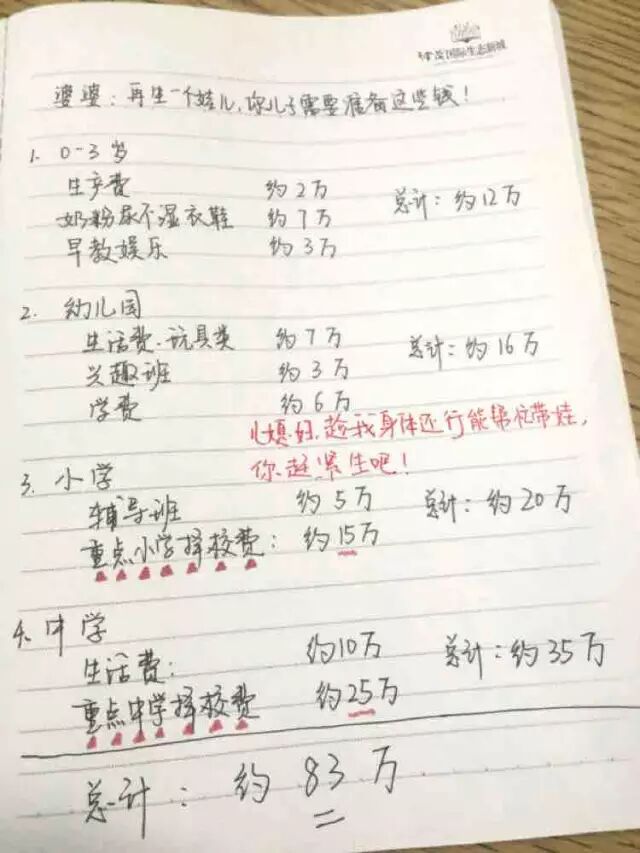 国际生态新城
婆婆：再生一个娃儿，你儿子需要准备这些钱！
1. 0-3岁
生产费 约2万
奶粉尿不湿衣鞋 约7万 总计：约12万
早教娱乐 约3万
2. 幼儿园
生活费、玩具类 约7万 总计：约16万
兴趣班 约3万
学费 约6万
儿媳妇，趁我身体还行能帮忙带娃，
你赶紧生吧！
3. 小学
辅导班 约5万 总计：约20万
重点小学择校费： 约15万
4. 中学
生活费： 约10万 总计：约35万
重点中学择校费 约25万
总计： 约83万